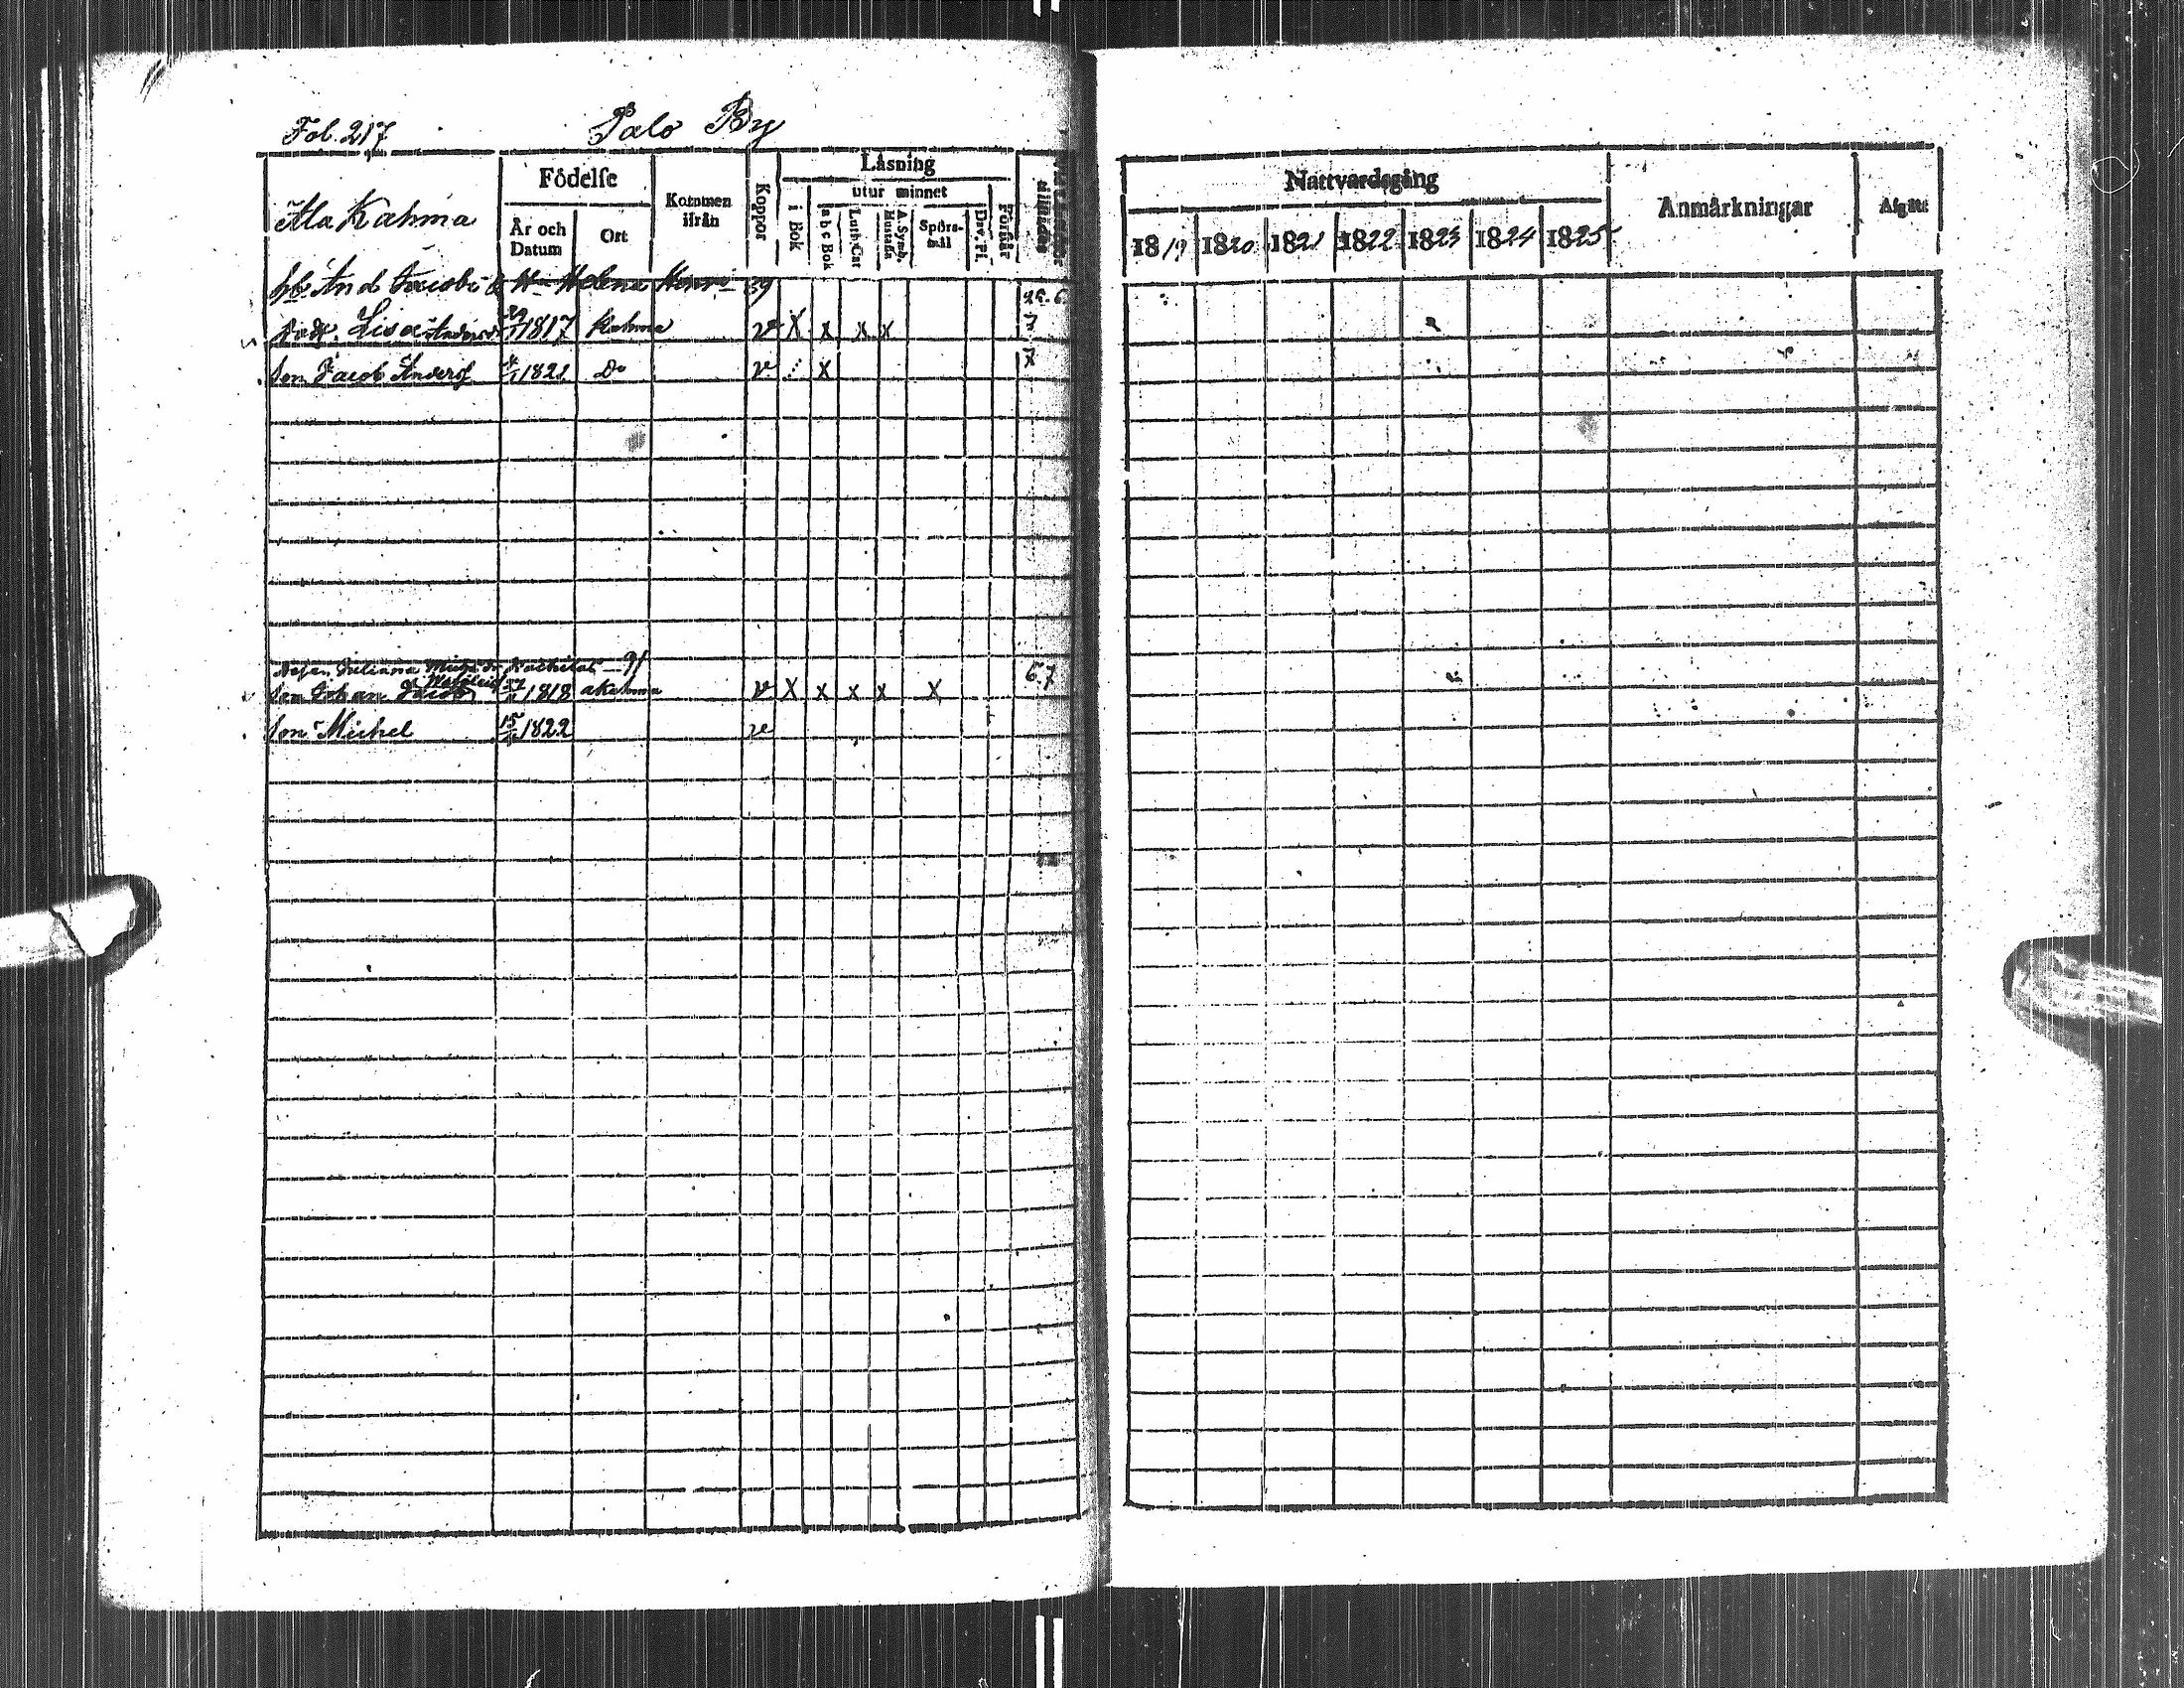 Fol. 217 Palo By
Ala Kahma
Födelse
År och Datum
Ort
Kommen ifrån
Koppor
Läsning
i Bok
utur minnet
a b c Bok
Luth. Cat
A. Symb. Hustafla
Spörsmål
Dav. Ps.
Förstår
And Jacobs & H Helena 39
25. 6
Lisa 1817 Kahma v X x x x 7
Son Jacob Anders 1822 Do v x x
Juliana 91
Son Johan Jacob 1818 aKahma v X x x x X 6.7
Son Michel 15 1822 v
Nattvardsgång
1819 1820 1821 1822 1823 1824 1825
Anmärkningar
Afgått